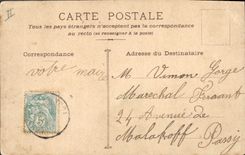 II
CARTE POSTALE
Tous les pays étrangers n'acceptent pas la correspondance
au recto (se renseigner à la poste)
Correspondance
Adresse du Destinataire
votre
M Vimon Gorge
Marechal
24 Avenue de
Malakoff
Passy